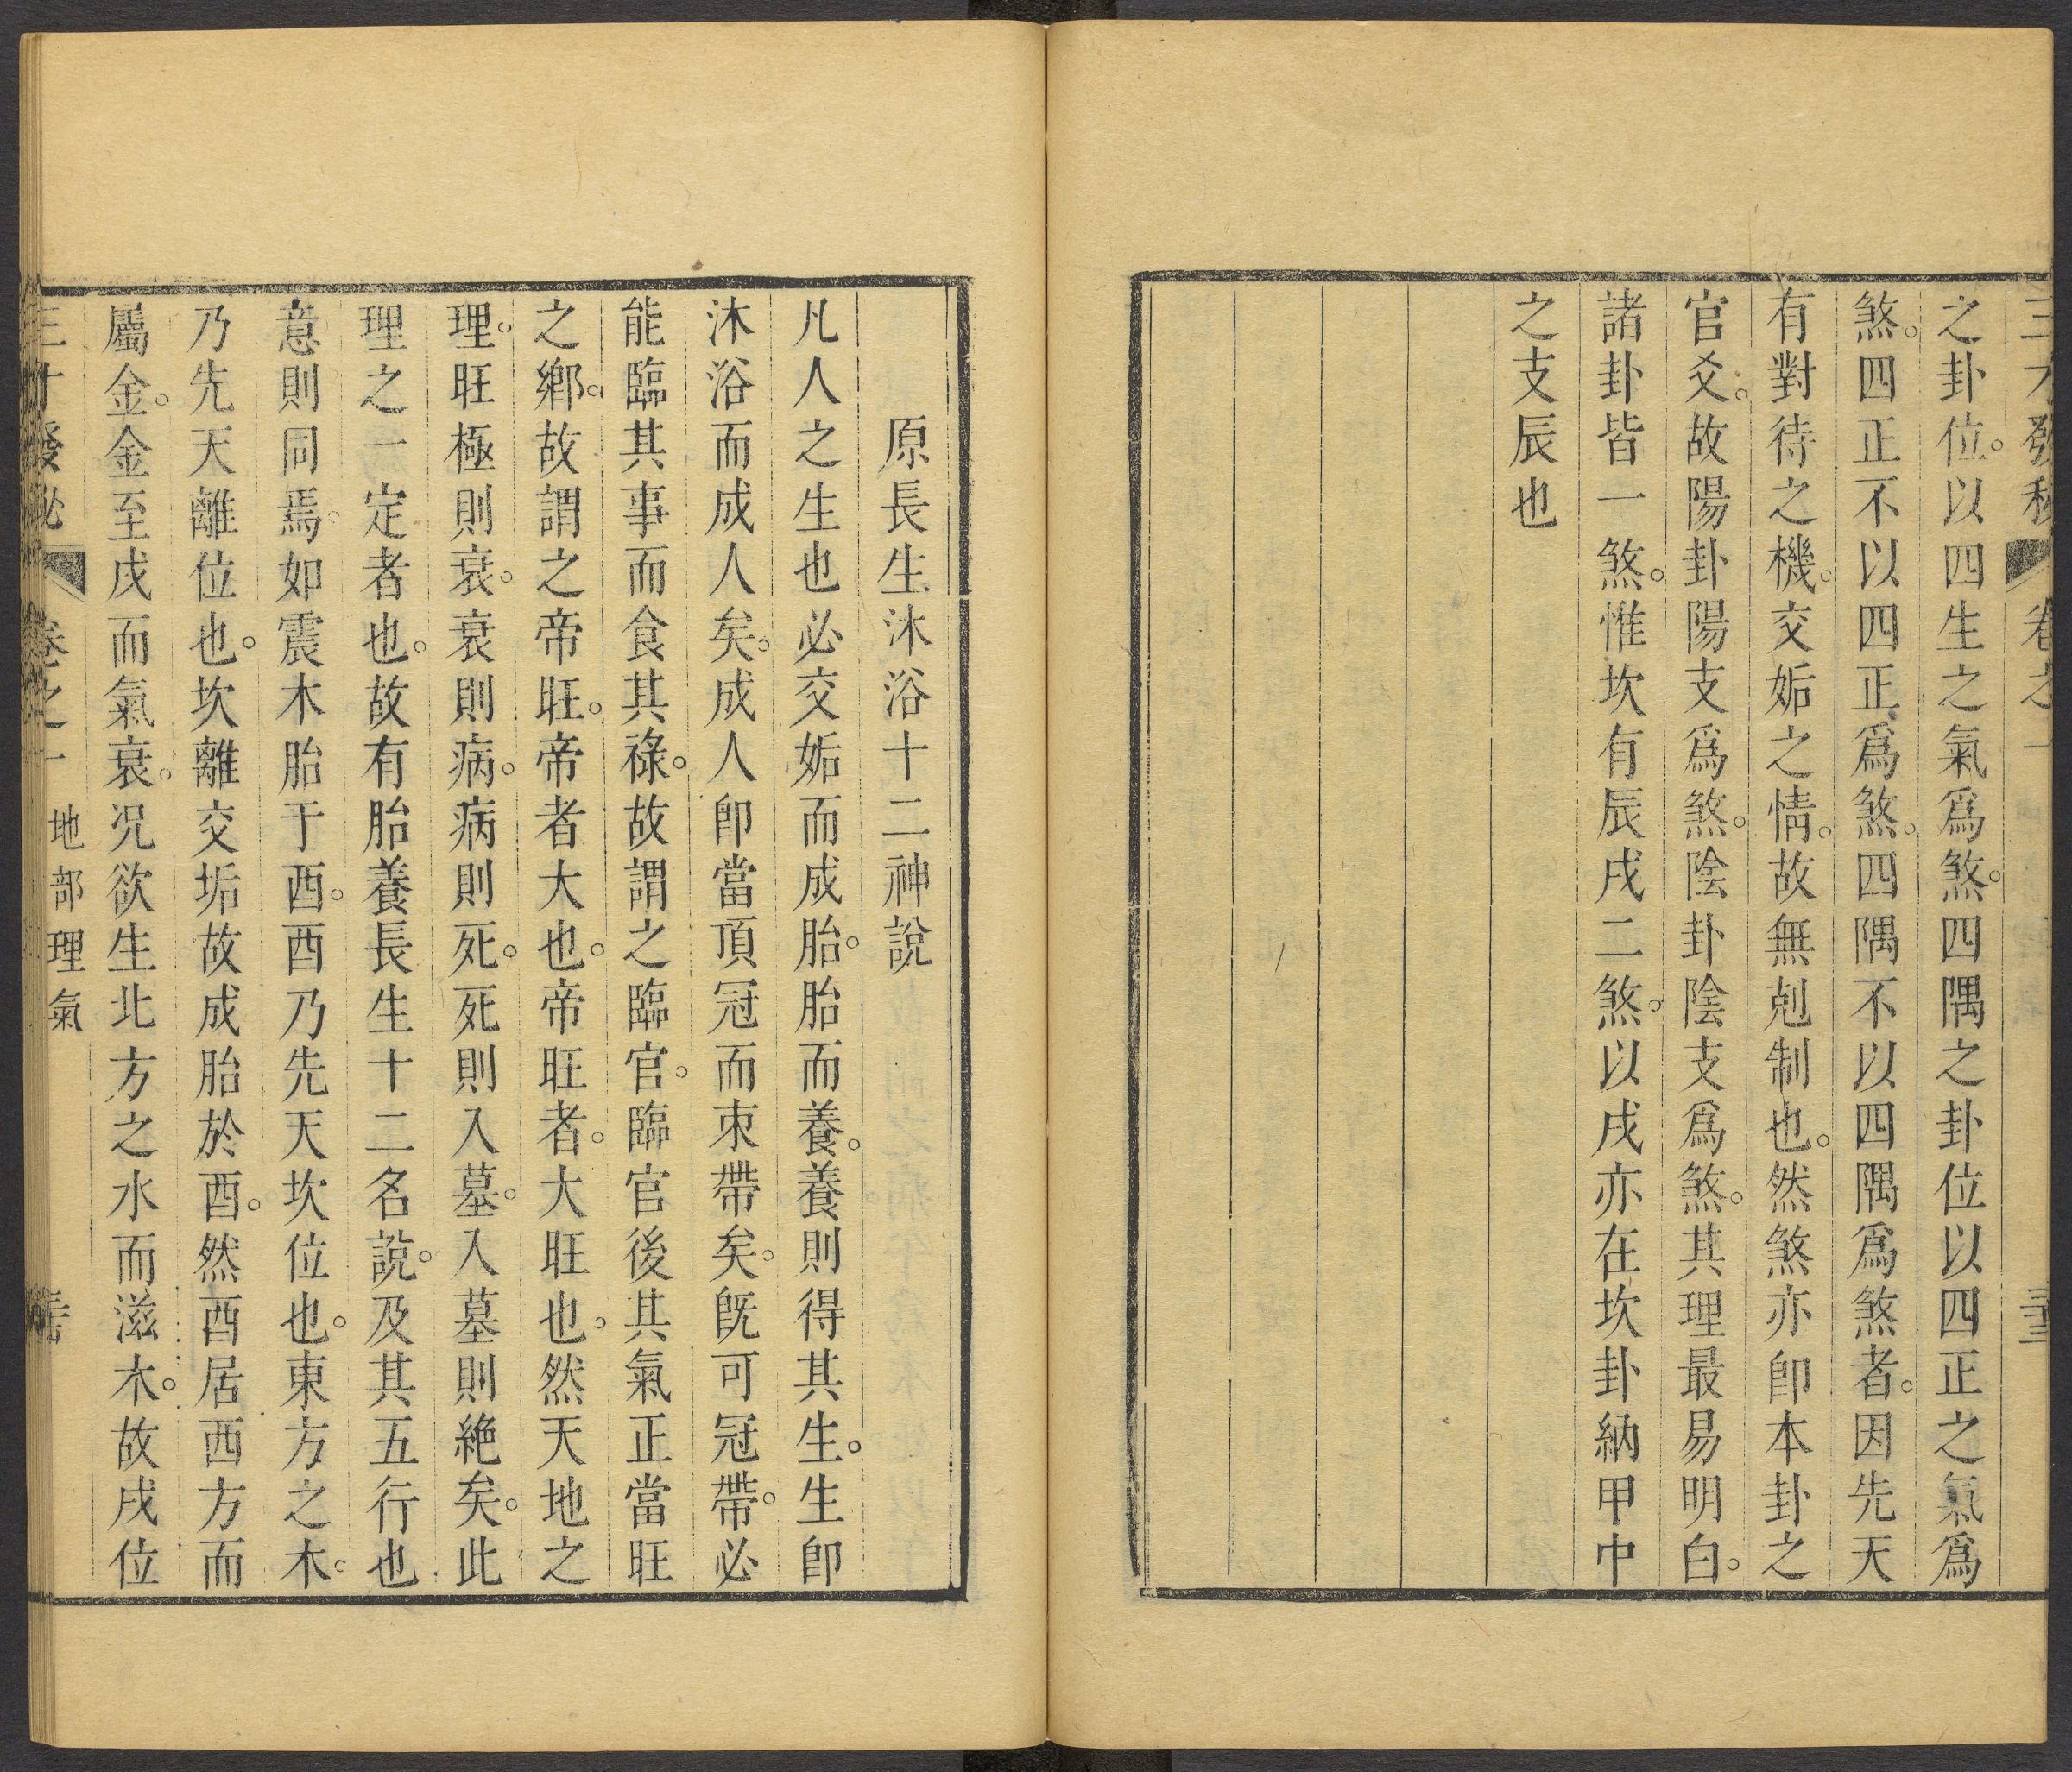 三才發秘 卷之一
之卦位。以四生之氣爲煞。四隅之卦位以四正之氣爲
煞。四正不以四正爲煞。四隅不以四隅爲煞者。因先天
有對待之機。交姤之情。故無剋制也。然煞亦卽本卦之
官爻。故陽卦陽支爲煞。陰卦陰支爲煞。其理最易明白。
諸卦皆一煞。惟坎有辰戌二煞。以戌亦在坎卦納甲中
之支辰也
原長生沐浴十二神說
凡人之生也必交姤而成胎。胎而養。養則得其生。生卽
沐浴而成人矣。成人卽當頂冠而束帶矣。旣可冠帶。必
能臨其事而食其祿。故謂之臨官。臨官後其氣正當旺
之鄉。故謂之帝旺。帝者大也。帝旺者。大旺也。然天地之
理。旺極則衰。衰則病。病則死。死則入墓。入墓則絶矣。此
理之一定者也。故有胎養長生十二名說。及其五行也
意則同焉。如震木胎于酉。酉乃先天坎位也。東方之木。
乃先天離位也。坎離交垢故成胎於酉。然酉居西方而
屬金。金至戌而氣衰。况欲生北方之水而滋木。故戌位
三才發秘 卷之一 地部理氣